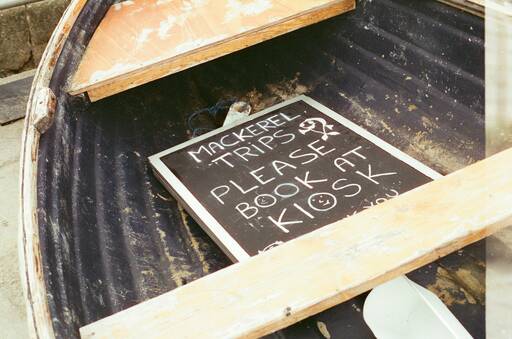 MACKEREL
TRIPS
PLEASE
BOOK AT
KIOSK
YOU